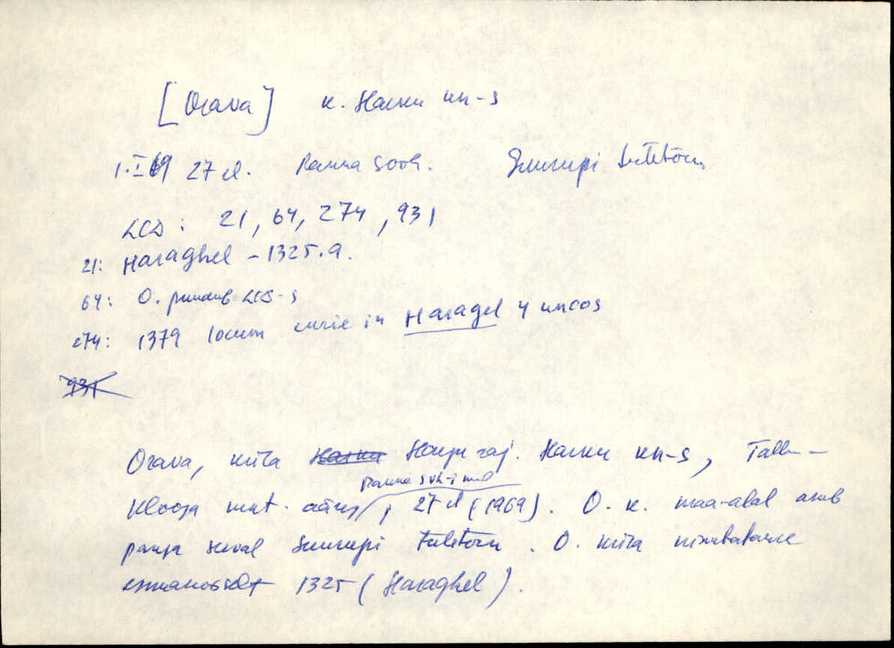 [Orava] k. Harku kn-s
1.I 69 27 el. Ranna sovh. Suurupi tuletorn
LCD: 21, 64, 274, 931
21: Haraghel – 1325.a.
64: O. puudub LCD-s
274: 1379 locum curie in Haragel 4 uncos
931
Orava, küla Harku Harju raj. Harku kn-s, Tallinn–
Klooga mnt. ääres, 27 el (1969). O. k. maa-alal asub
Ranna svh-i
panga serval Suurupi tuletorn. O. küla nimetatakse
esmakordselt 1325 (Haraghel).